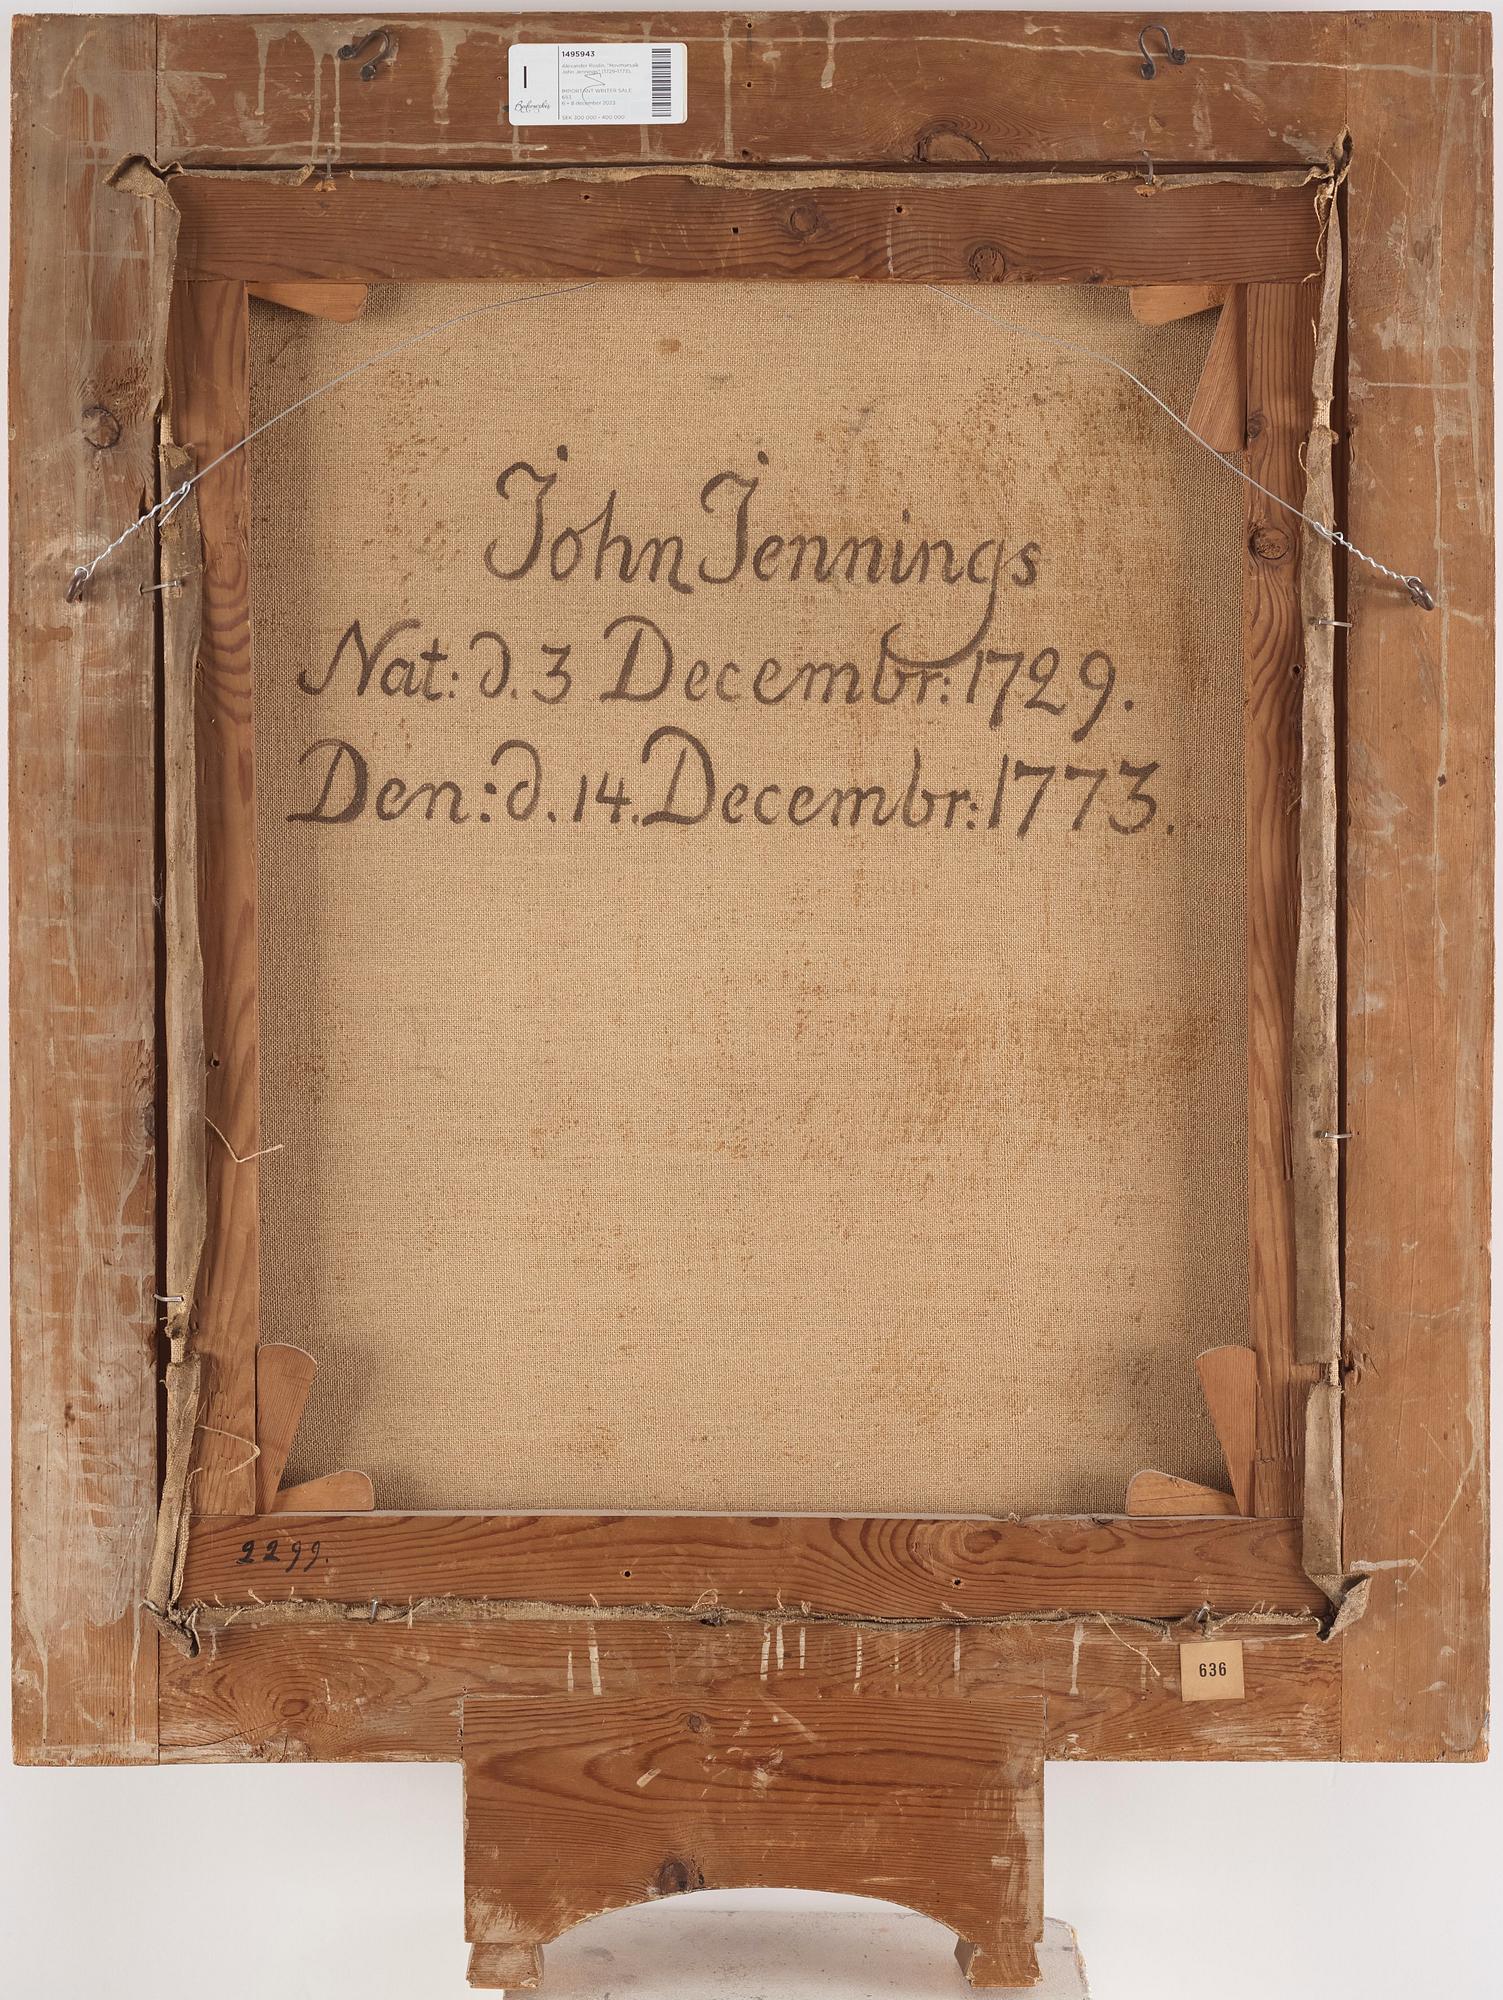 1495943
Alexander Roslin, "Hovmarsalk
John Jennings" (1729-1773).
IMPORTANT WINTER SALE
6 - 8 december 2023
SEK 300 000 - 400 000
Bukowskis
John Jennings
Nat: d. 3 Decembr: 1729.
Den: d. 14. Decembr: 1773.
2299.
636